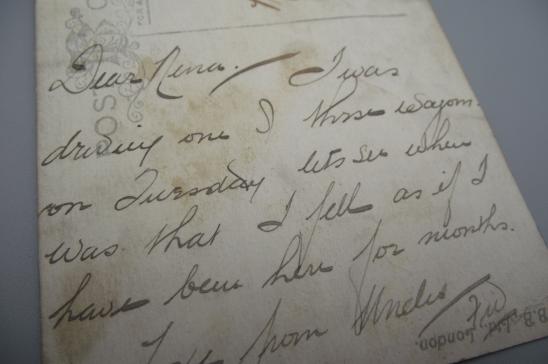 POST
Dear Rena. I was
driving one of those wagons
on Tuesday lets see when
was that I fell as if I
have been here for months.
from Uncle
B.B. London.